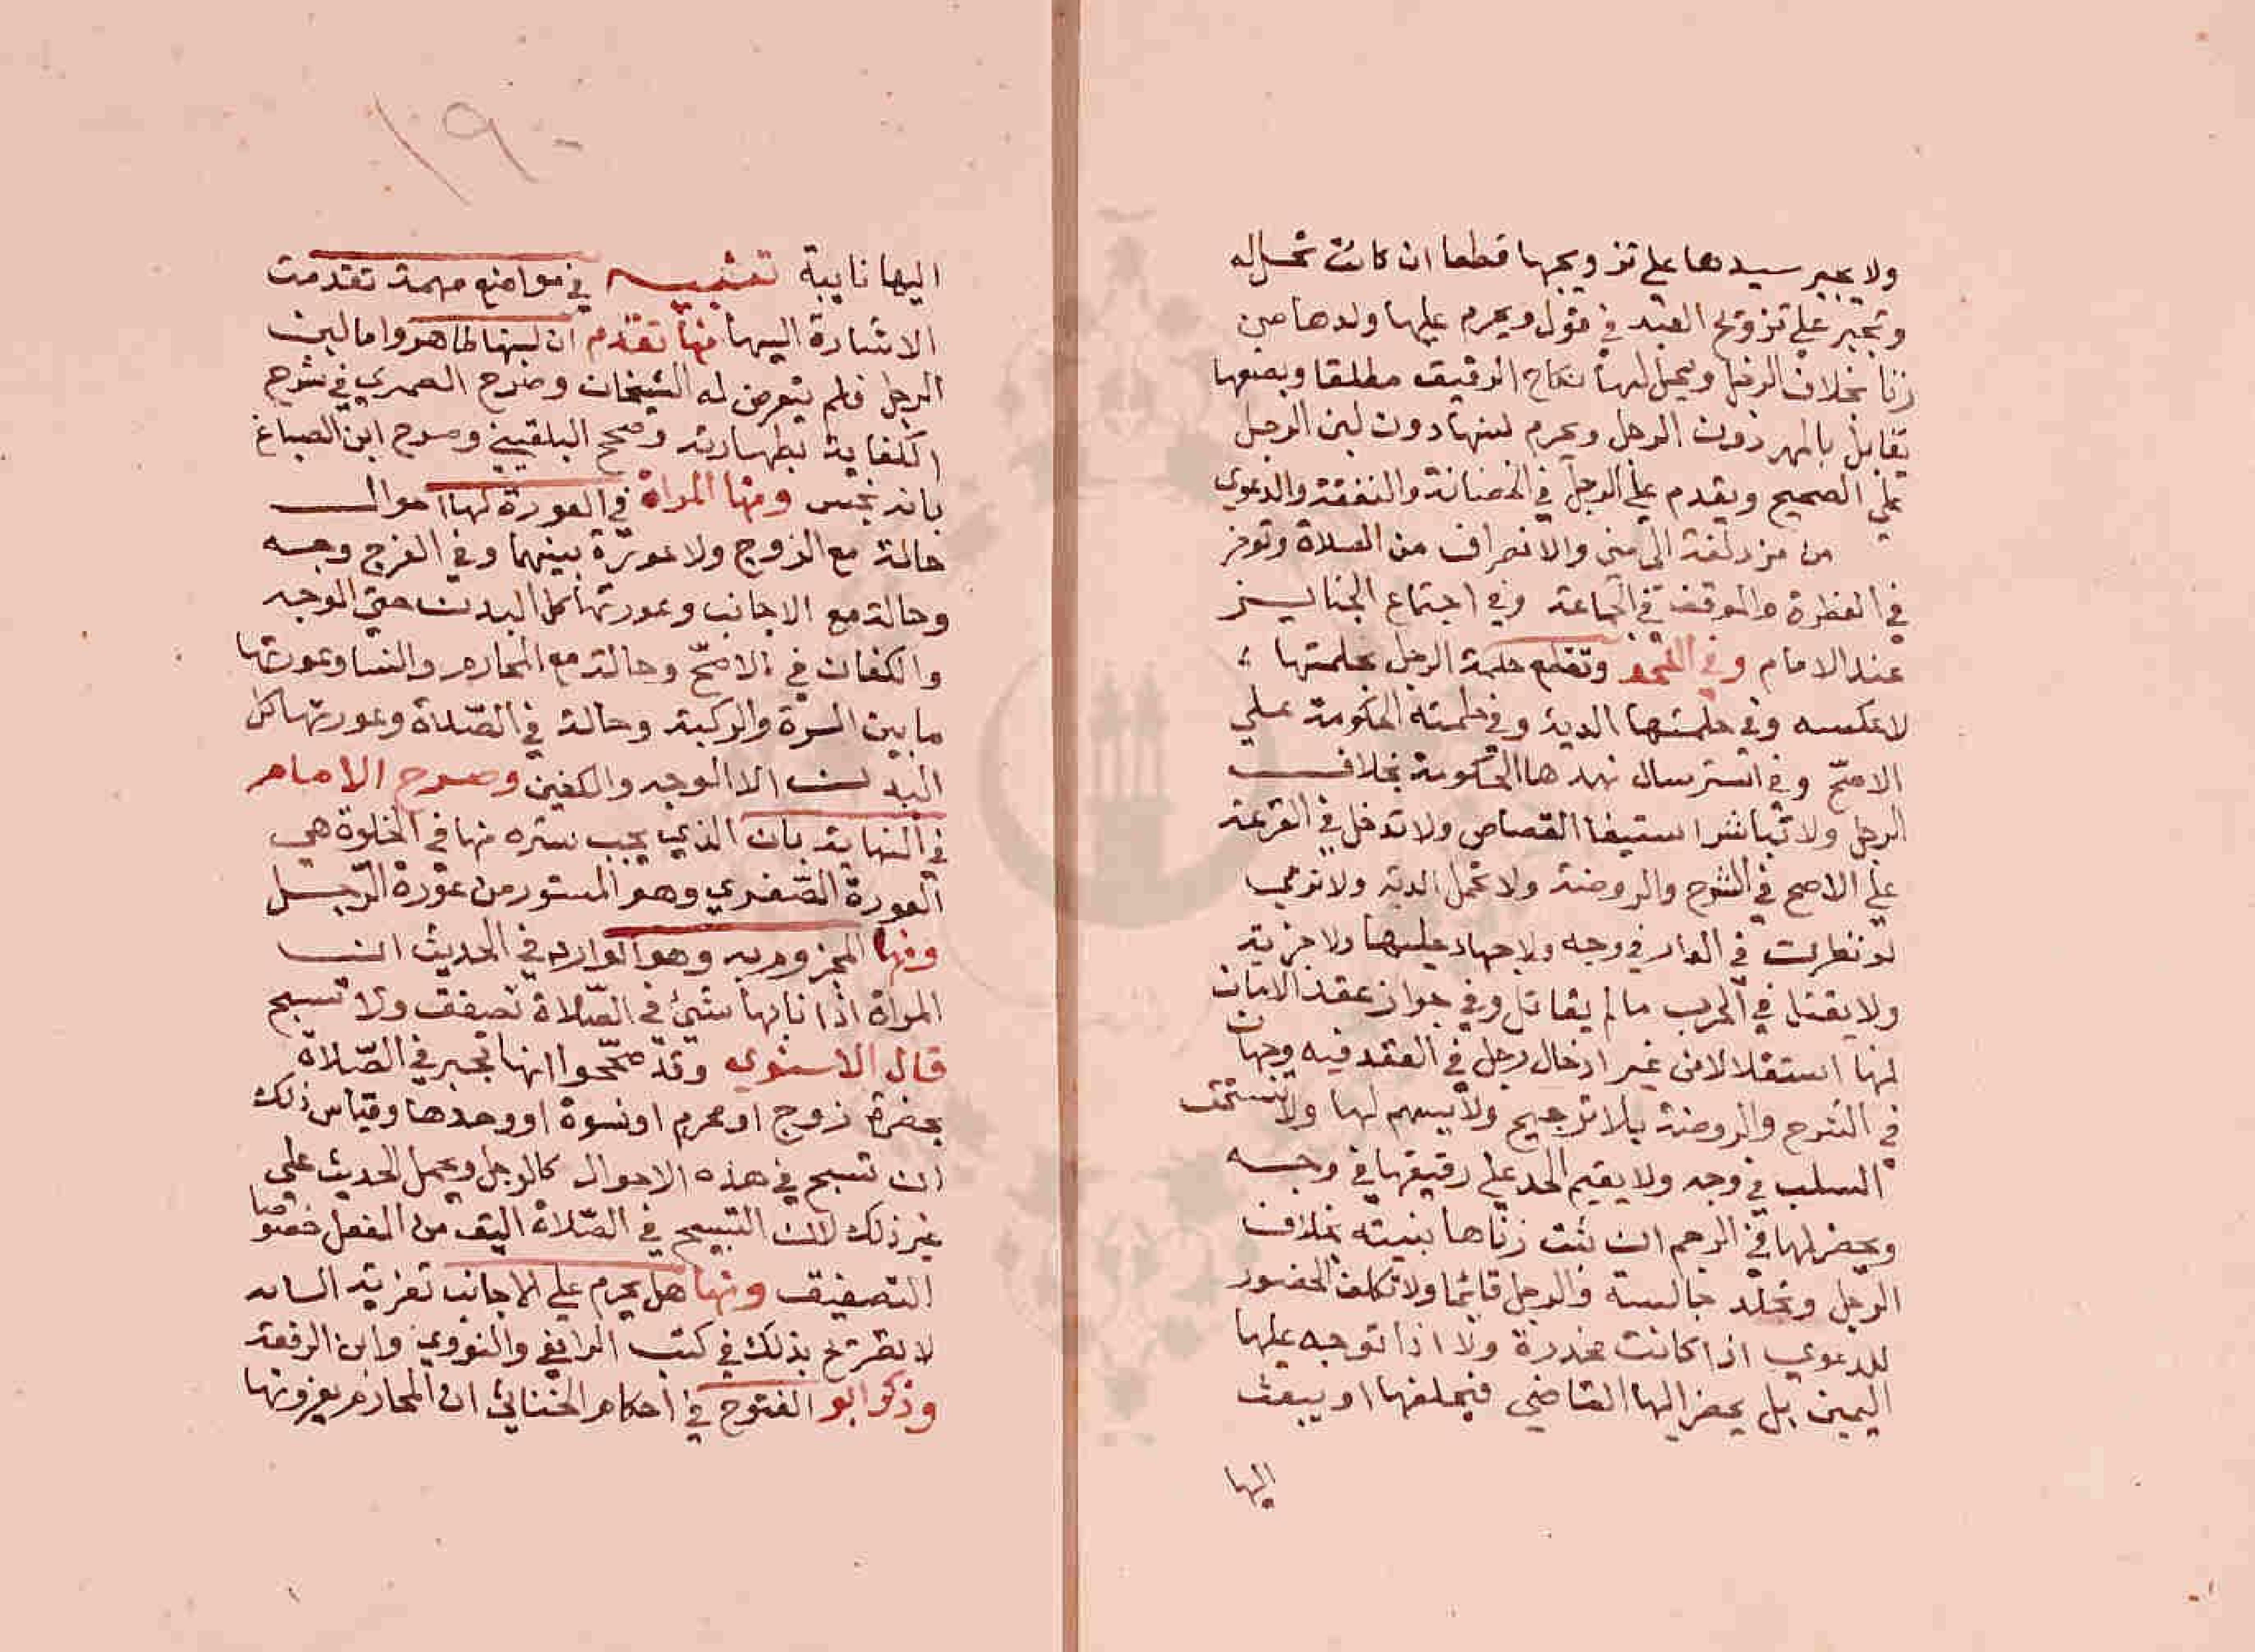 ولا يجبر سيدها علي تزويجها قطعا ان كانت تحل له
وتجبر علي تزويج العبد في قول ويحرم عليها ولدها من
زنا بخلاف الرجل ويحل لها نكاح الرقيق مطلقا وبضعها
يقابل بالمهر دون الرجل ويحرم لبنها دون لبن الرجل
علي الصحيح ويقدم علي الرجل في الحضانة والنفقة والدعوي
من مزدلفة الي مني والانصراف من الصلاة وتوخر
في الفطرة والموقف في الجماعة وفي اجتماع الجنايز
عند الامام وفي اللحد وتقطع حلمة الرجل بحلمتها
لاعكسه وفي حلمتها الدية وفي حلمته الحكومة علي
الاصح وفي استرسال نهدها الحكومة بخلاف
الرجل ولا تباشر استيفا القصاص ولا تدخل في القرعة
علي الاصح في الشرح والروضة ولا تحمل الدية ولا ترمي
لو نظرت في الدار في وجه ولا جهاد عليها ولا جزية
ولا يقتل في الحرب ما لم يقاتل وفي جواز عقد الامان
لها استقلالا من غير ادخال رجل في العقد فيه وجهان
في الشرح والروضة بلا ترجيح ولا يسهم لها ولا تستحق
السلب في وجه ولا يقيم الحد علي رقيقها في وجه
ويحفر لها في الرجم ان ثبت زناها ببينته بخلاف
الرجل وتجلد جالسة والرجل قائما ولا تكلف الحضور
للدعوي اذا كانت مخدرة ولا اذا توجه عليها
اليمين بل يحضر اليها القاضي فيحلفها او يبعث
اليها
١٩٠
اليها نايبة تنبيه في مواضع مهمة تقدمت
الاشارة اليها منها تقدم ان لبنها طاهر واما لبن
الرجل فلم يتعرض له الشيخان وصرح الصمري في شرح
الكفاية بطهارته وصحح البلقيني وصرح ابن الصباغ
بانه نجس ومنها المراة في العورة لها احوال
حالة مع الزوج ولا عورة بينهما وفي الفرج وجه
وحالة مع الاجانب وعورتها كل البدن حتي الوجه
والكفان في الاصح وحالة مع المحارم والنسا وعورتها
ما بين السرة والركبة وحالة في الصلاة وعورتها كل
البدن الا الوجه والكفين وصرح الامام
في النهاية بان الذي يجب ستره منها في الخلوة هي
العورة الصغري وهو المستور من عورة الرجل
ومنها المجزوم به وهو الوارد في الحديث ان
المراة اذا نابها شيئ في الصلاة تصفق ولا تسبح
قال الاسنوي وقد صححوا انها تجهر في الصلاة
بحضرة زوج او محرم او نسوة او وحدها وقياس ذلك
ان تسبح في هذه الاحوال كالرجل ويحمل الحديث علي
غير ذلك لان التسبيح في الصلاة اليق من الفعل خصوصا
التصفيق ومنها هل يحرم علي الاجانب تعزية الشابه
لا تصريح بذلك في كتب الرافعي والنووي وابن الرفعة
وذكر ابو الفتوح في احكام الخناثي ان المحارم يعزونها